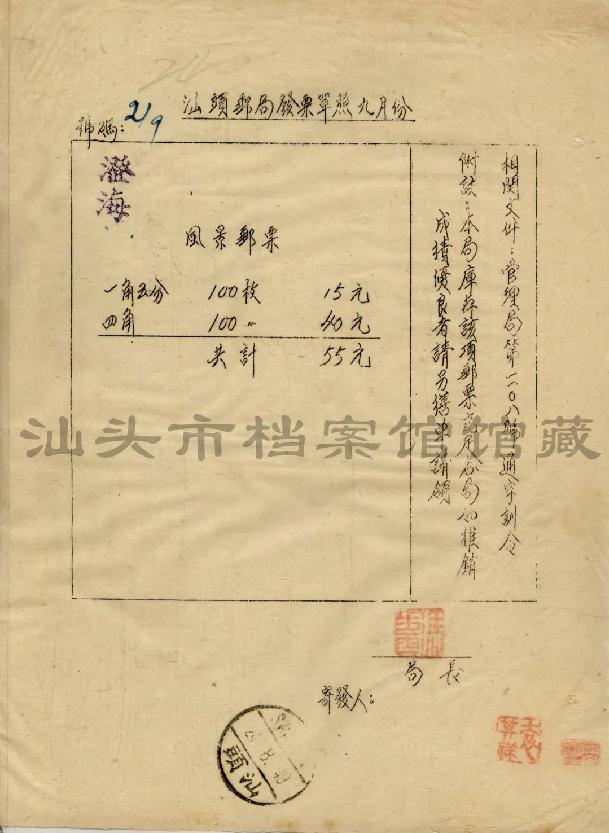 汕頭郵局發票單照九月份
號碼：2/9
相關文件：管理局第一六〇八號通字訓令
附註：本局庫存該項郵票
各局如推銷
成績優良者請另
請領
澄海
風景郵票
一角五分 100枚 15元
四角 100〃 40元
共計 55元
汕头市档案馆馆藏
局長
寄發人：
汕頭